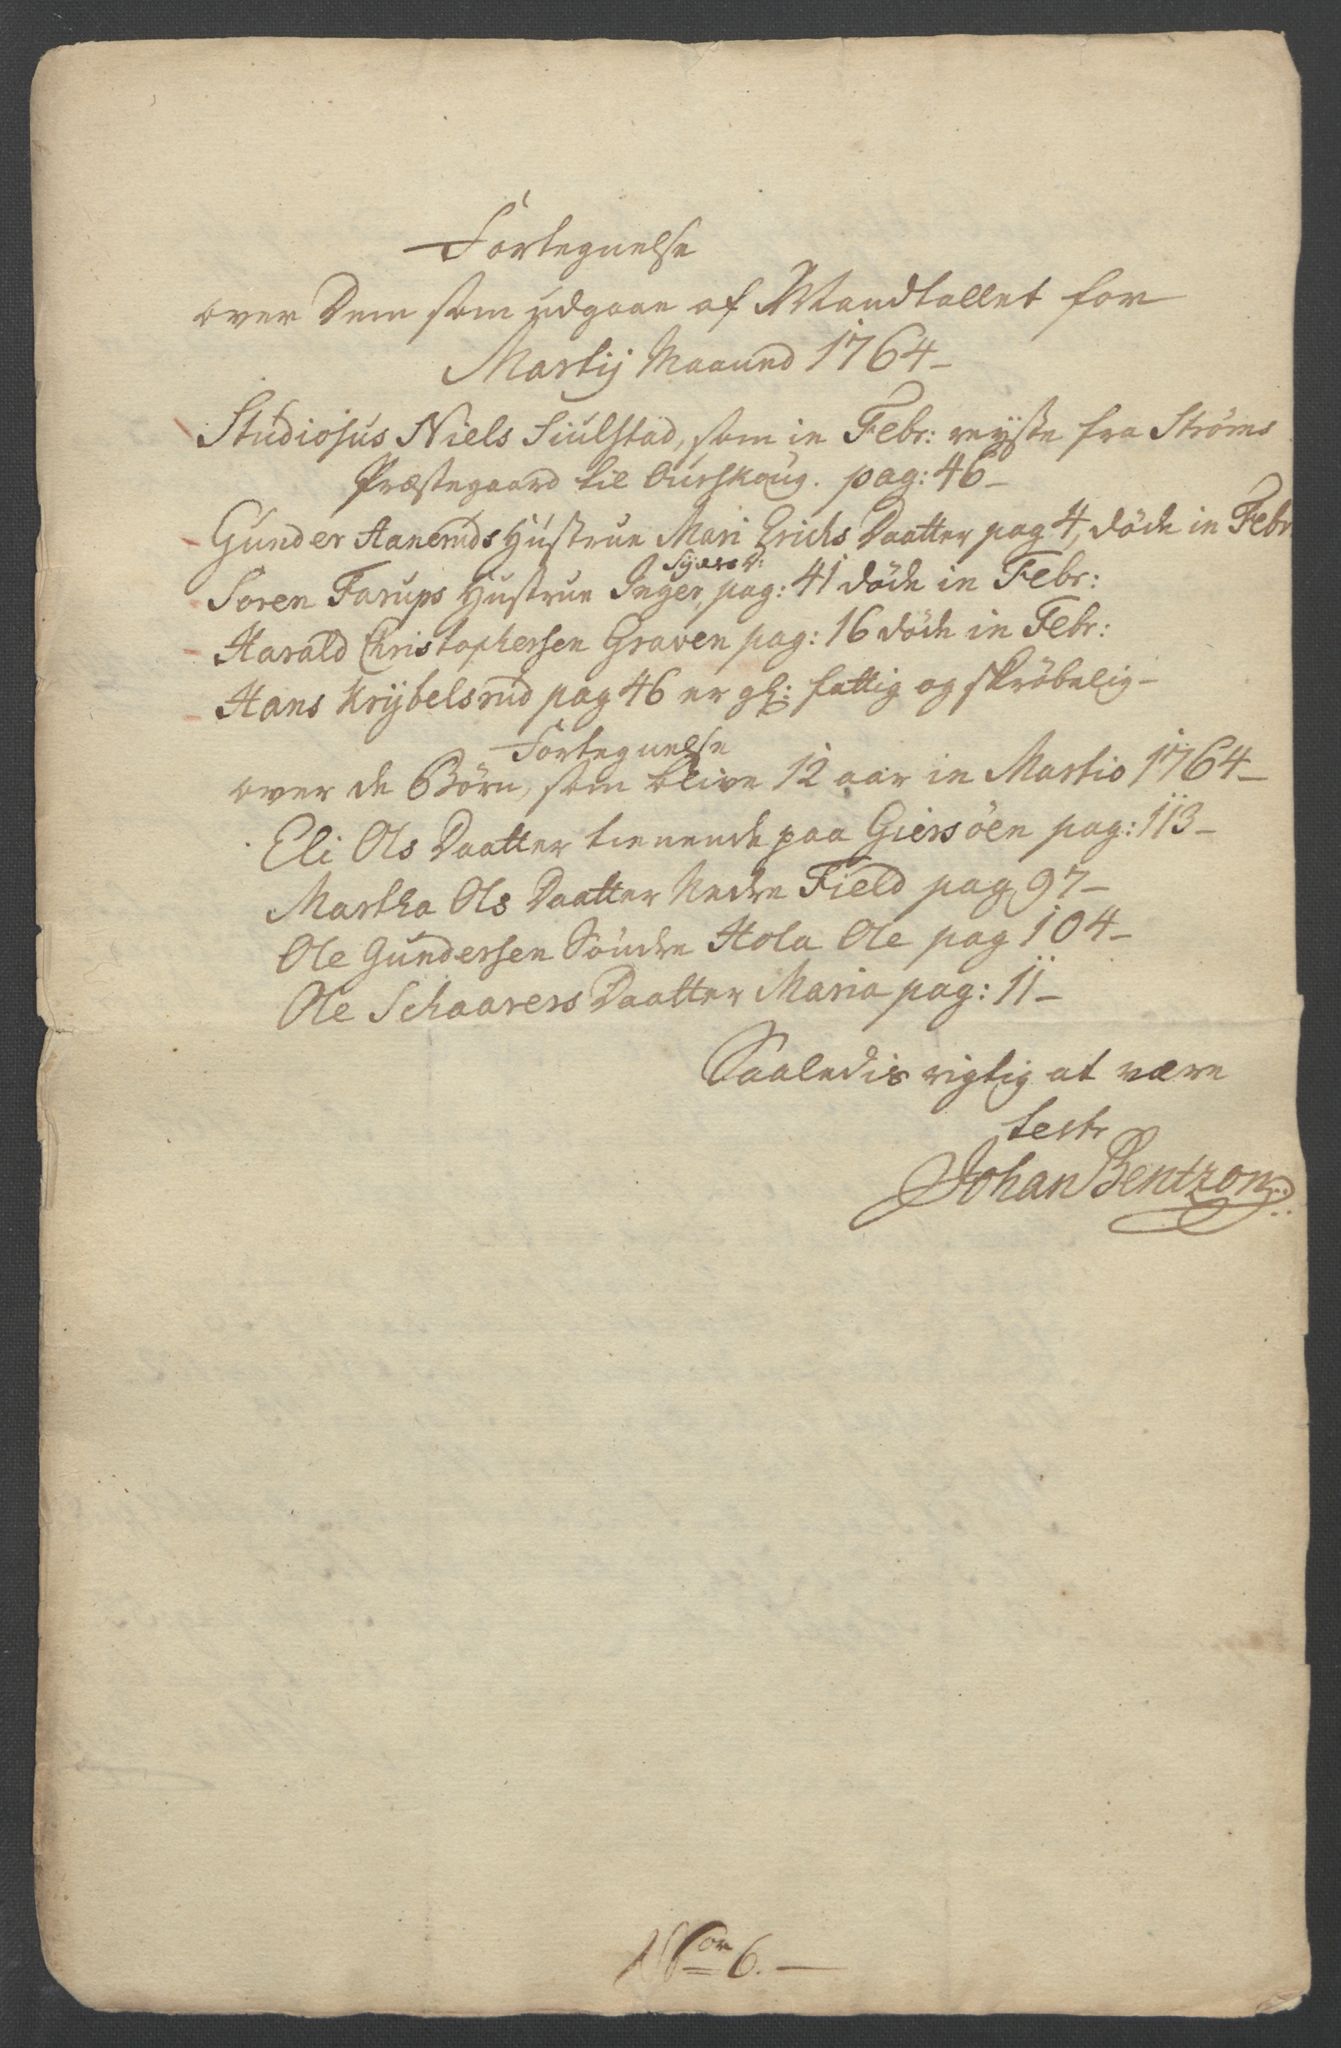 Fortegnelse
over Dem som udgaae af Mandtallet for
Martij Maaned 1764 –
Studiosus Niels Siulstad, som in Febr: reyste fra Ströms
Præstegaard til Ourskoug. pag: 46 –
Gunder Aaneruds Hustrue Mari Erichs Daatter pag 4, döde in Febr:
Soren Farups Hustrue Inger, pag: 41 döde in Febr:
Harald Christophersen Graven pag: 16 döde in Febr:
Hans Krÿbelsrud pag 46 er gl: fattig og skröbelig –
Fortegnelse
over de Börn, som blive 12 aar in Martio 1764 –
Eli Ols Daatter tienende paa Giersöen pag: 113 –
Martha Ols Daatter Nedre Field pag 97 –
Ole Gundersen Söndre Hola Ole pag 104 –
Ole Schaarers Daatter Maria pag: 11 –
Saaledis rigtig at være
test:
Johan Bentzon
No 6. –